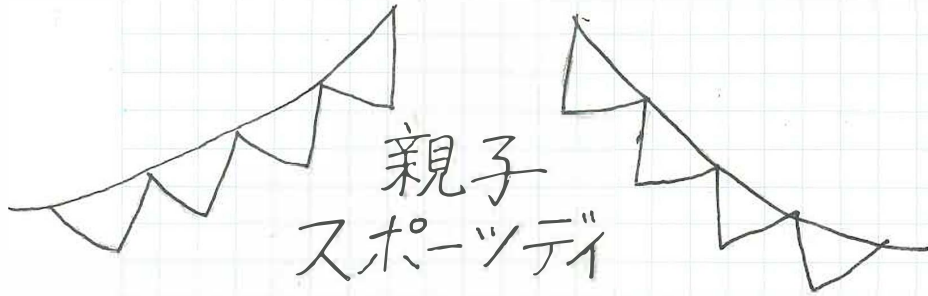 親子
スポーツディ